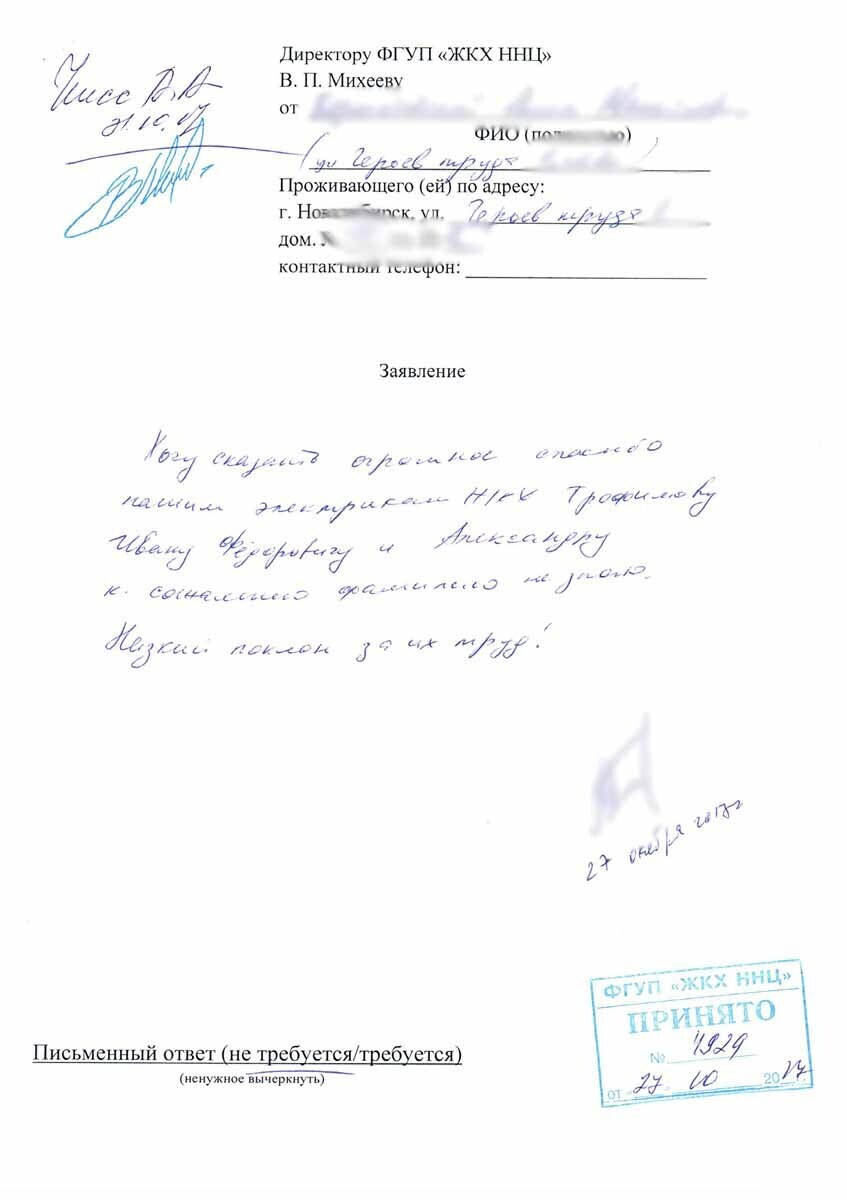 Директору ФГУП «ЖКХ ННЦ»
В. П. Михееву
от
ФИО
(ул Героев труда
Проживающего (ей) по адресу:
г. Новосибирск, ул. Героев труда
дом.
контактный телефон:
Заявление
Хочу сказать огромное спасибо
нашим электрикам Трофимову
Ивану Фёдоровичу и Александру
к. сожалению фамилию не знаю.
Низкий поклон за их труд!
27 октября 2017г
ФГУП «ЖКХ ННЦ»
ПРИНЯТО
№ 4929
от 27 10 2017 г.
Письменный ответ (не требуется/требуется)
(ненужное вычеркнуть)